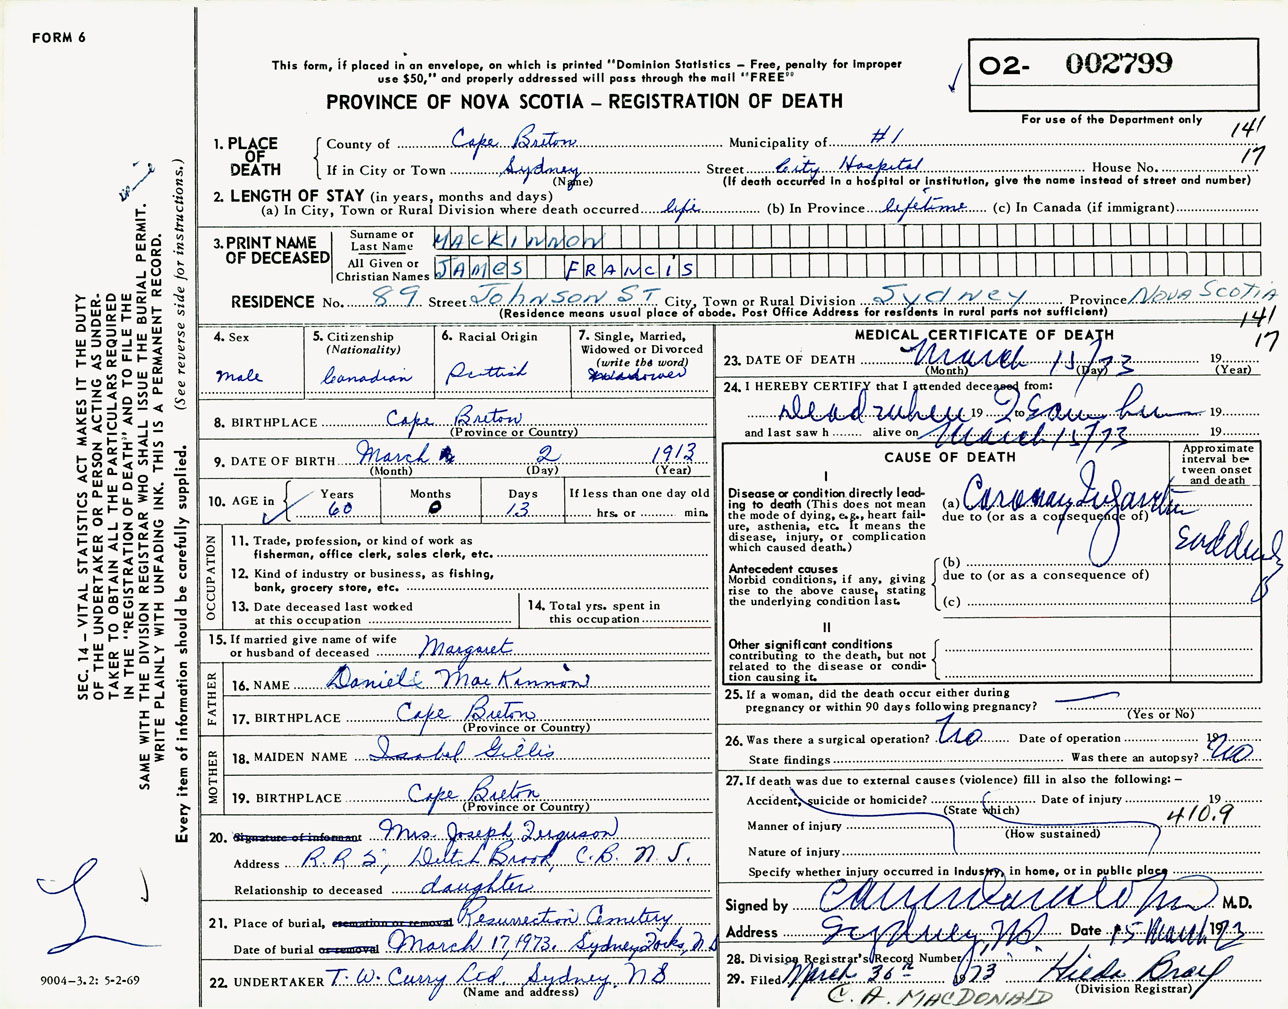 FORM 6
This form, if placed in an envelope, on which is printed "Dominion Statistics – Free, penalty for improper
use $50," and properly addressed will pass through the mail "FREE"
O2- 002799
PROVINCE OF NOVA SCOTIA – REGISTRATION OF DEATH
For use of the Department only
141
17
1. PLACE OF DEATH
County of Cape Breton Municipality of #1
If in City or Town Sydney Street City Hospital House No.
(Name) (If death occurred in a hospital or institution, give the name instead of street and number)
2. LENGTH OF STAY (in years, months and days)
(a) In City, Town or Rural Division where death occurred life (b) In Province lifetime (c) In Canada (if immigrant)
3. PRINT NAME OF DECEASED
Surname or Last Name MACKINNON
All Given or Christian Names JAMES FRANCIS
RESIDENCE No. 89 Street Johnson ST City, Town or Rural Division Sydney Province Nova Scotia
(Residence means usual place of abode. Post Office Address for residents in rural parts not sufficient)
141
17
4. Sex
male
5. Citizenship
(Nationality)
Canadian
6. Racial Origin
Scottish
7. Single, Married,
Widowed or Divorced
(write the word)
widower
8. BIRTHPLACE Cape Breton
(Province or Country)
9. DATE OF BIRTH March 2 1913
(Month) (Day) (Year)
10. AGE in
Years Months Days If less than one day old
60 0 13 hrs. or min.
OCCUPATION
11. Trade, profession, or kind of work as
fisherman, office clerk, sales clerk, etc.
12. Kind of industry or business, as fishing,
bank, grocery store, etc.
13. Date deceased last worked
at this occupation
14. Total yrs. spent in
this occupation
15. If married give name of wife
or husband of deceased Margaret
FATHER
16. NAME Daniel MacKinnon
17. BIRTHPLACE Cape Breton
(Province or Country)
MOTHER
18. MAIDEN NAME Isabel Gillis
19. BIRTHPLACE Cape Breton
(Province or Country)
20. Signature of informant Mrs. Joseph Ferguson
Address R.R. 5, Dutch Brook, C.B. N.S.
Relationship to deceased daughter
21. Place of burial, cremation or removal Resurrection Cemetery
Date of burial or removal March 17, 1973. Sydney Forks, N.S
22. UNDERTAKER T. W. Curry Ltd. Sydney, NS
(Name and address)
MEDICAL CERTIFICATE OF DEATH
23. DATE OF DEATH March 15/73 19
(Month) (Day) (Year)
24. I HEREBY CERTIFY that I attended deceased from:
Dead when 19 to I saw him 19
and last saw h alive on March 15/73 19
CAUSE OF DEATH
Approximate
interval be-
tween onset
and death
I
Disease or condition directly lead-
ing to death (This does not mean
the mode of dying, e.g., heart fail-
ure, asthenia, etc. It means the
disease, injury, or complication
which caused death.)
(a) Coronary Infarction
due to (or as a consequence of)
Suddenly
Antecedent causes
Morbid conditions, if any, giving
rise to the above cause, stating
the underlying condition last.
(b)
due to (or as a consequence of)
(c)
II
Other significant conditions
contributing to the death, but not
related to the disease or condi-
tion causing it.
25. If a woman, did the death occur either during
pregnancy or within 90 days following pregnancy?
(Yes or No)
26. Was there a surgical operation? No Date of operation 19
State findings Was there an autopsy? No
27. If death was due to external causes (violence) fill in also the following: –
Accident, suicide or homicide? Date of injury 19
(State which)
410.9
Manner of injury
(How sustained)
Nature of injury
Specify whether injury occurred in Industry, in home, or in public place
Signed by M.D.
Address Sydney, NS Date 15 March 1973
28. Division Registrar's Record Number
29. Filed March 30th 1973 Hilda Bray
(Division Registrar)
C. A. MACDONALD
SEC. 14 – VITAL STATISTICS ACT MAKES IT THE DUTY
OF THE UNDERTAKER OR PERSON ACTING AS UNDER-
TAKER TO OBTAIN ALL THE PARTICULARS REQUIRED
IN THE "REGISTRATION OF DEATH" AND TO FILE THE
SAME WITH THE DIVISION REGISTRAR WHO SHALL ISSUE THE BURIAL PERMIT.
WRITE PLAINLY WITH UNFADING INK. THIS IS A PERMANENT RECORD.
Every item of information should be carefully supplied. (See reverse side for instructions.)
9004–3.2: 5-2-69